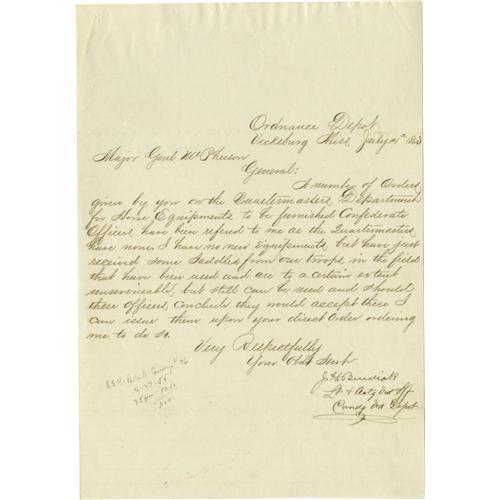 Ordnance Depot
Vicksburg Miss July 1863
Major Genl McPherson
General:
A number of Orders
given by you on the Quartermasters Department
for Horse Equipments to be furnished Confederate
Officers, have been referd to me as the Quartermasters
have none. I have no new Equipments, but have just
received some Saddles from our troops in the field
that have been used and are to a certain extent
unserviceable, but still can be used and should
these Officers conclude they would accept these I
can issue them upon your direct Order ordering
me to do so.
Very Respectfully
Your Obdt Servt
Lt & Actg Ord Off
Comdg Ord Depot
4-27-54